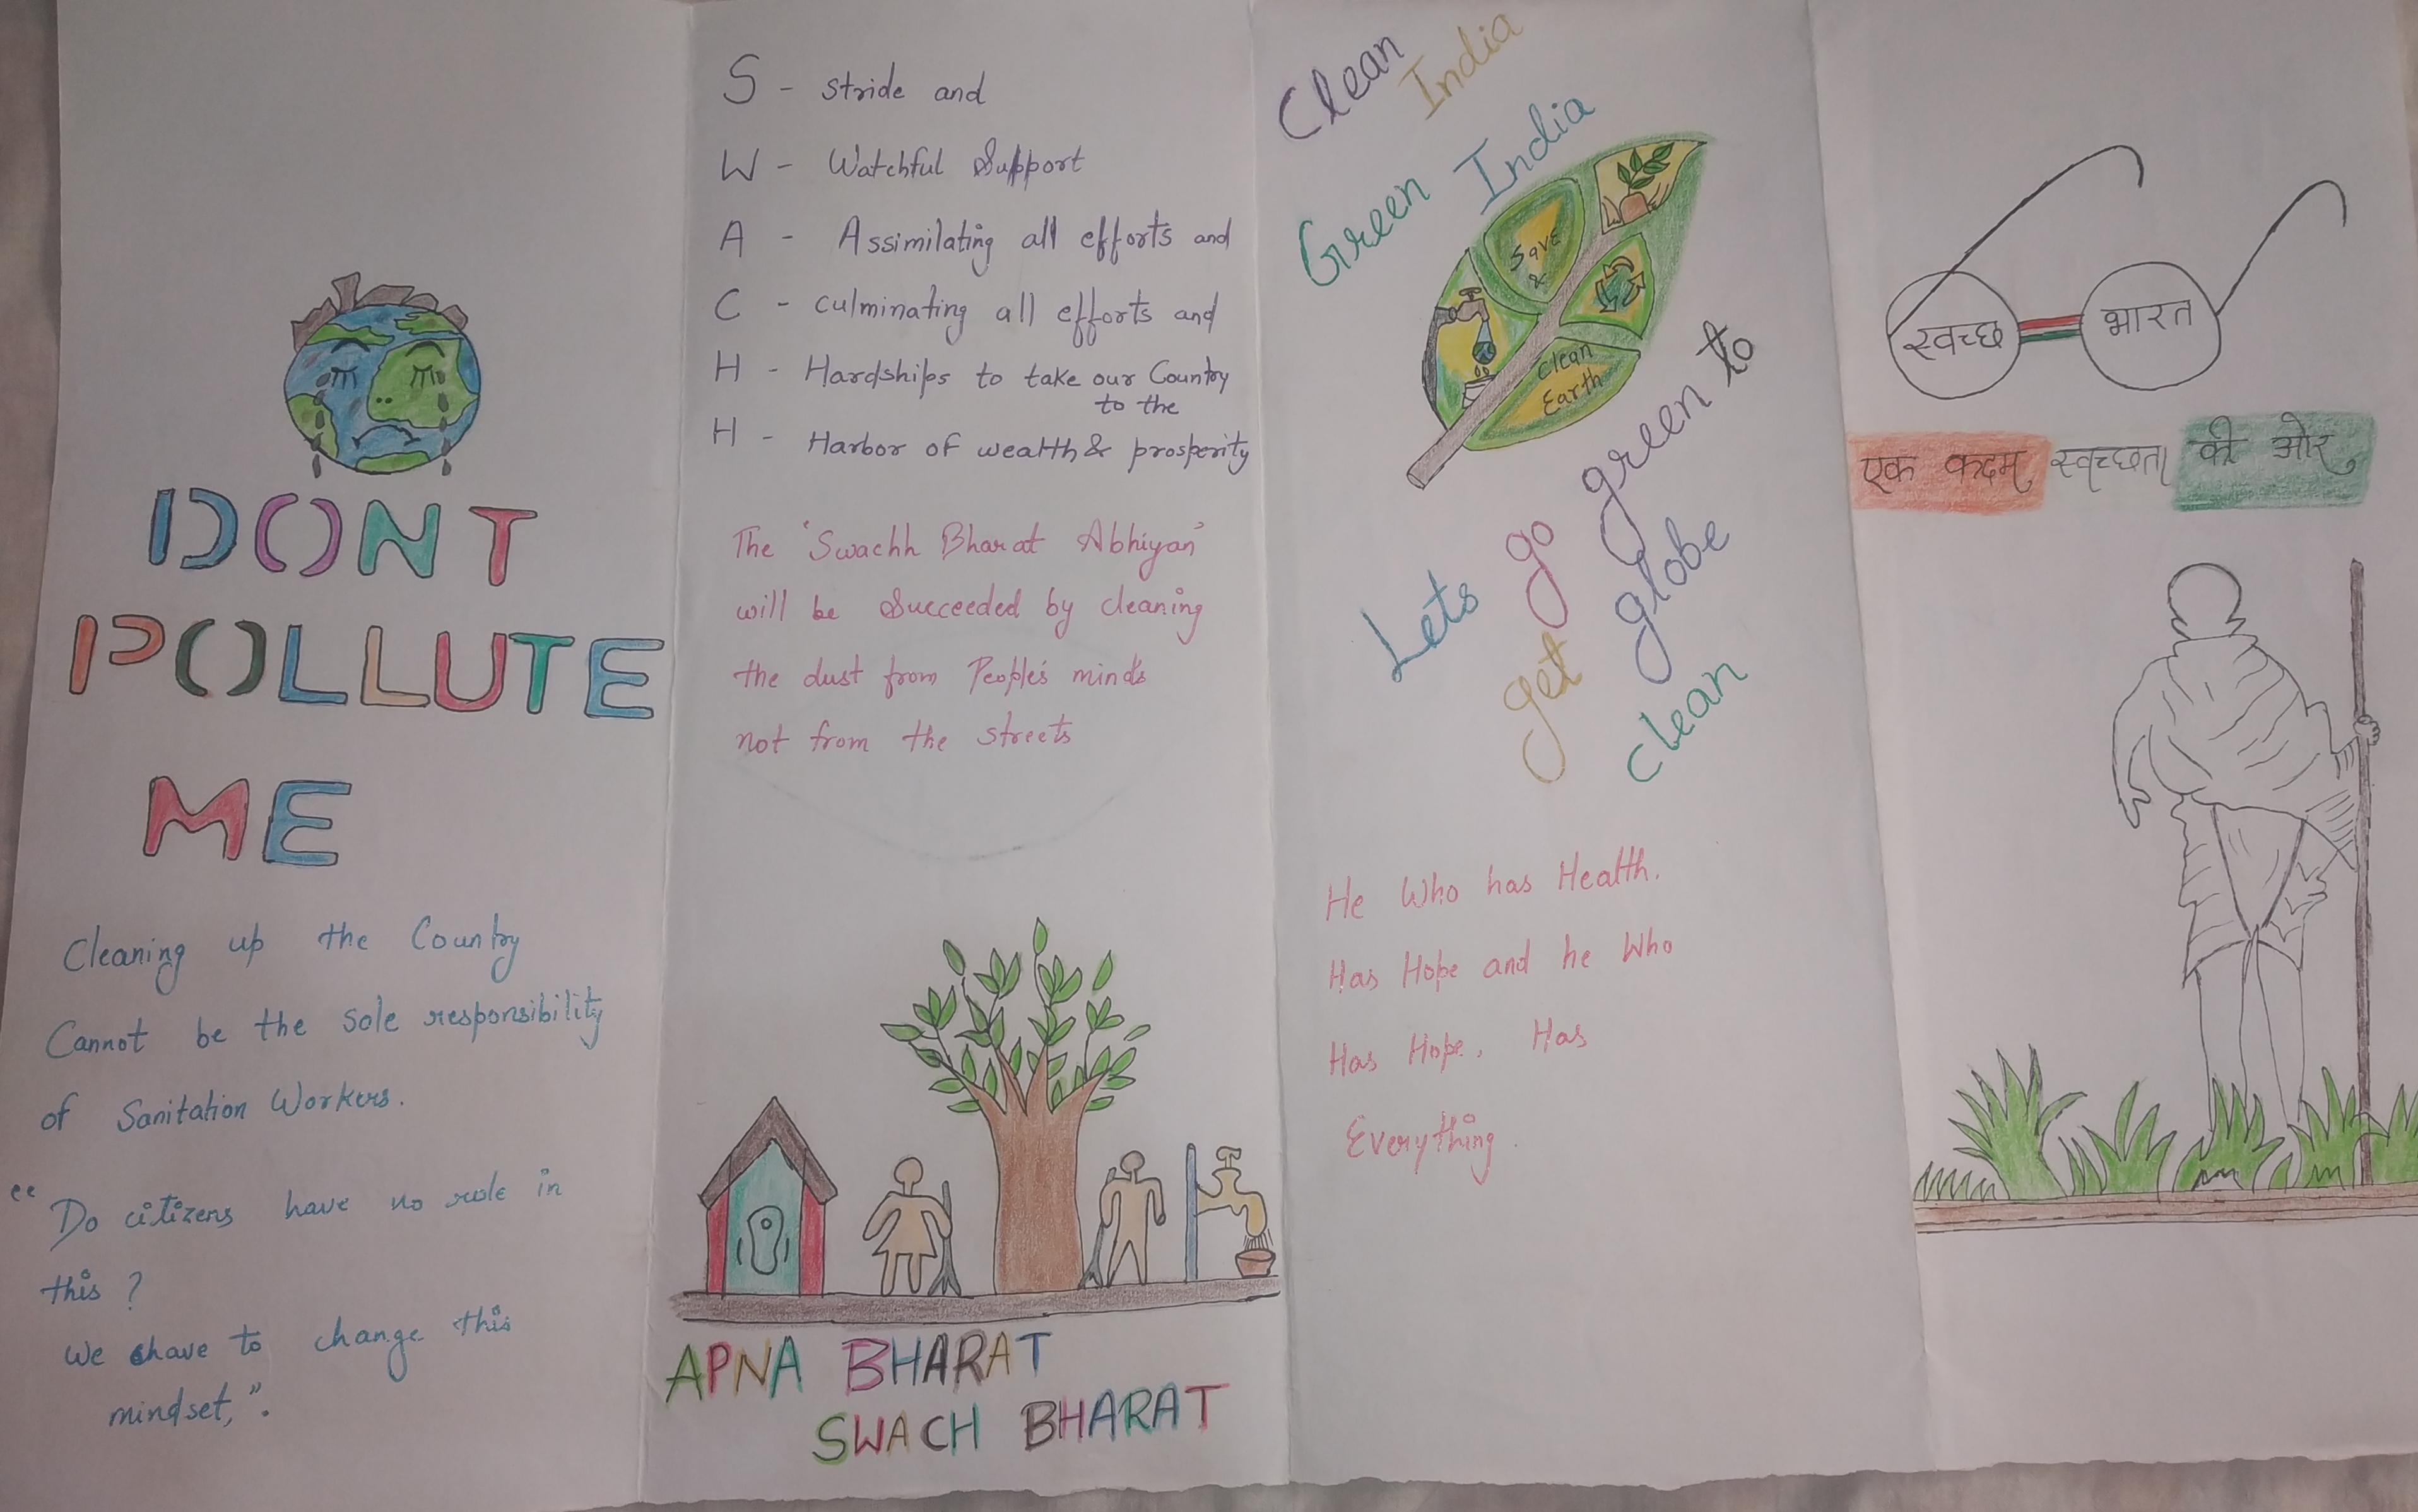 DONT
POLLUTE
ME
Cleaning up the Country
Cannot be the sole responsibility
of Sanitation Workers.
“Do citizens have no role in
this ?
We have to change this
mindset,”.
S - Stride and
W - Watchful Support
A - Assimilating all efforts and
C - culminating all efforts and
H - Hardships to take our Country
to the
H - Harbor of wealth & prosperity
The 'Swachh Bharat Abhiyan'
will be Succeeded by cleaning
the dust from People's minds
not from the streets
APNA BHARAT
SWACH BHARAT
Clean India
Green India
Save
&
Clean
Earth
Lets go green to
get globe
clean
He Who has Health.
Has Hope and he Who
Has Hope, Has
Everything.
स्वच्छ भारत
एक कदम स्वच्छता की ओर